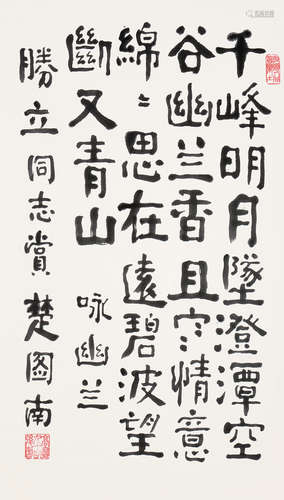 千峰明月墜澄潭空
谷幽兰香且寒情意
綿〻思在遠碧波望
斷又青山 咏幽兰
勝立同志賞 楚图南